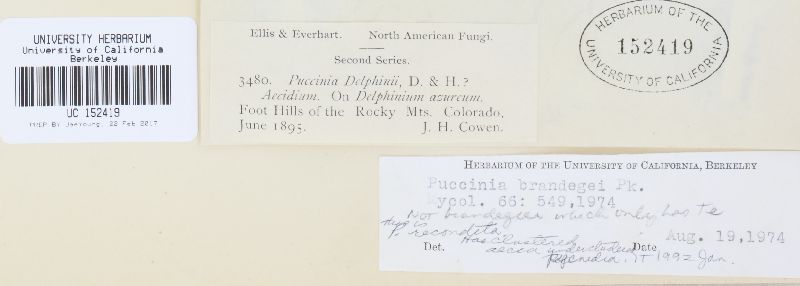 UNIVERSITY HERBARIUM
University of California
Berkeley
UC 152419
22 Feb 2017
Ellis & Everhart. North American Fungi.
Second Series.
3480. Puccinia Delphinii, D. & H.?
Aecidium. On Delphinium azureum.
Foot Hills of the Rocky Mts. Colorado,
June 1895. J. H. Cowen.
HERBARIUM OF THE
152419
UNIVERSITY OF CALIFORNIA
HERBARIUM OF THE UNIVERSITY OF CALIFORNIA, BERKELEY
Puccinia brandegei Pk.
Mycol. 66: 549,1974
Not brandegei which only has te
This is
P. recondita
Has clustered
aecia
Det. Date Aug. 19,1974
pycnidia. 1992 Jan.